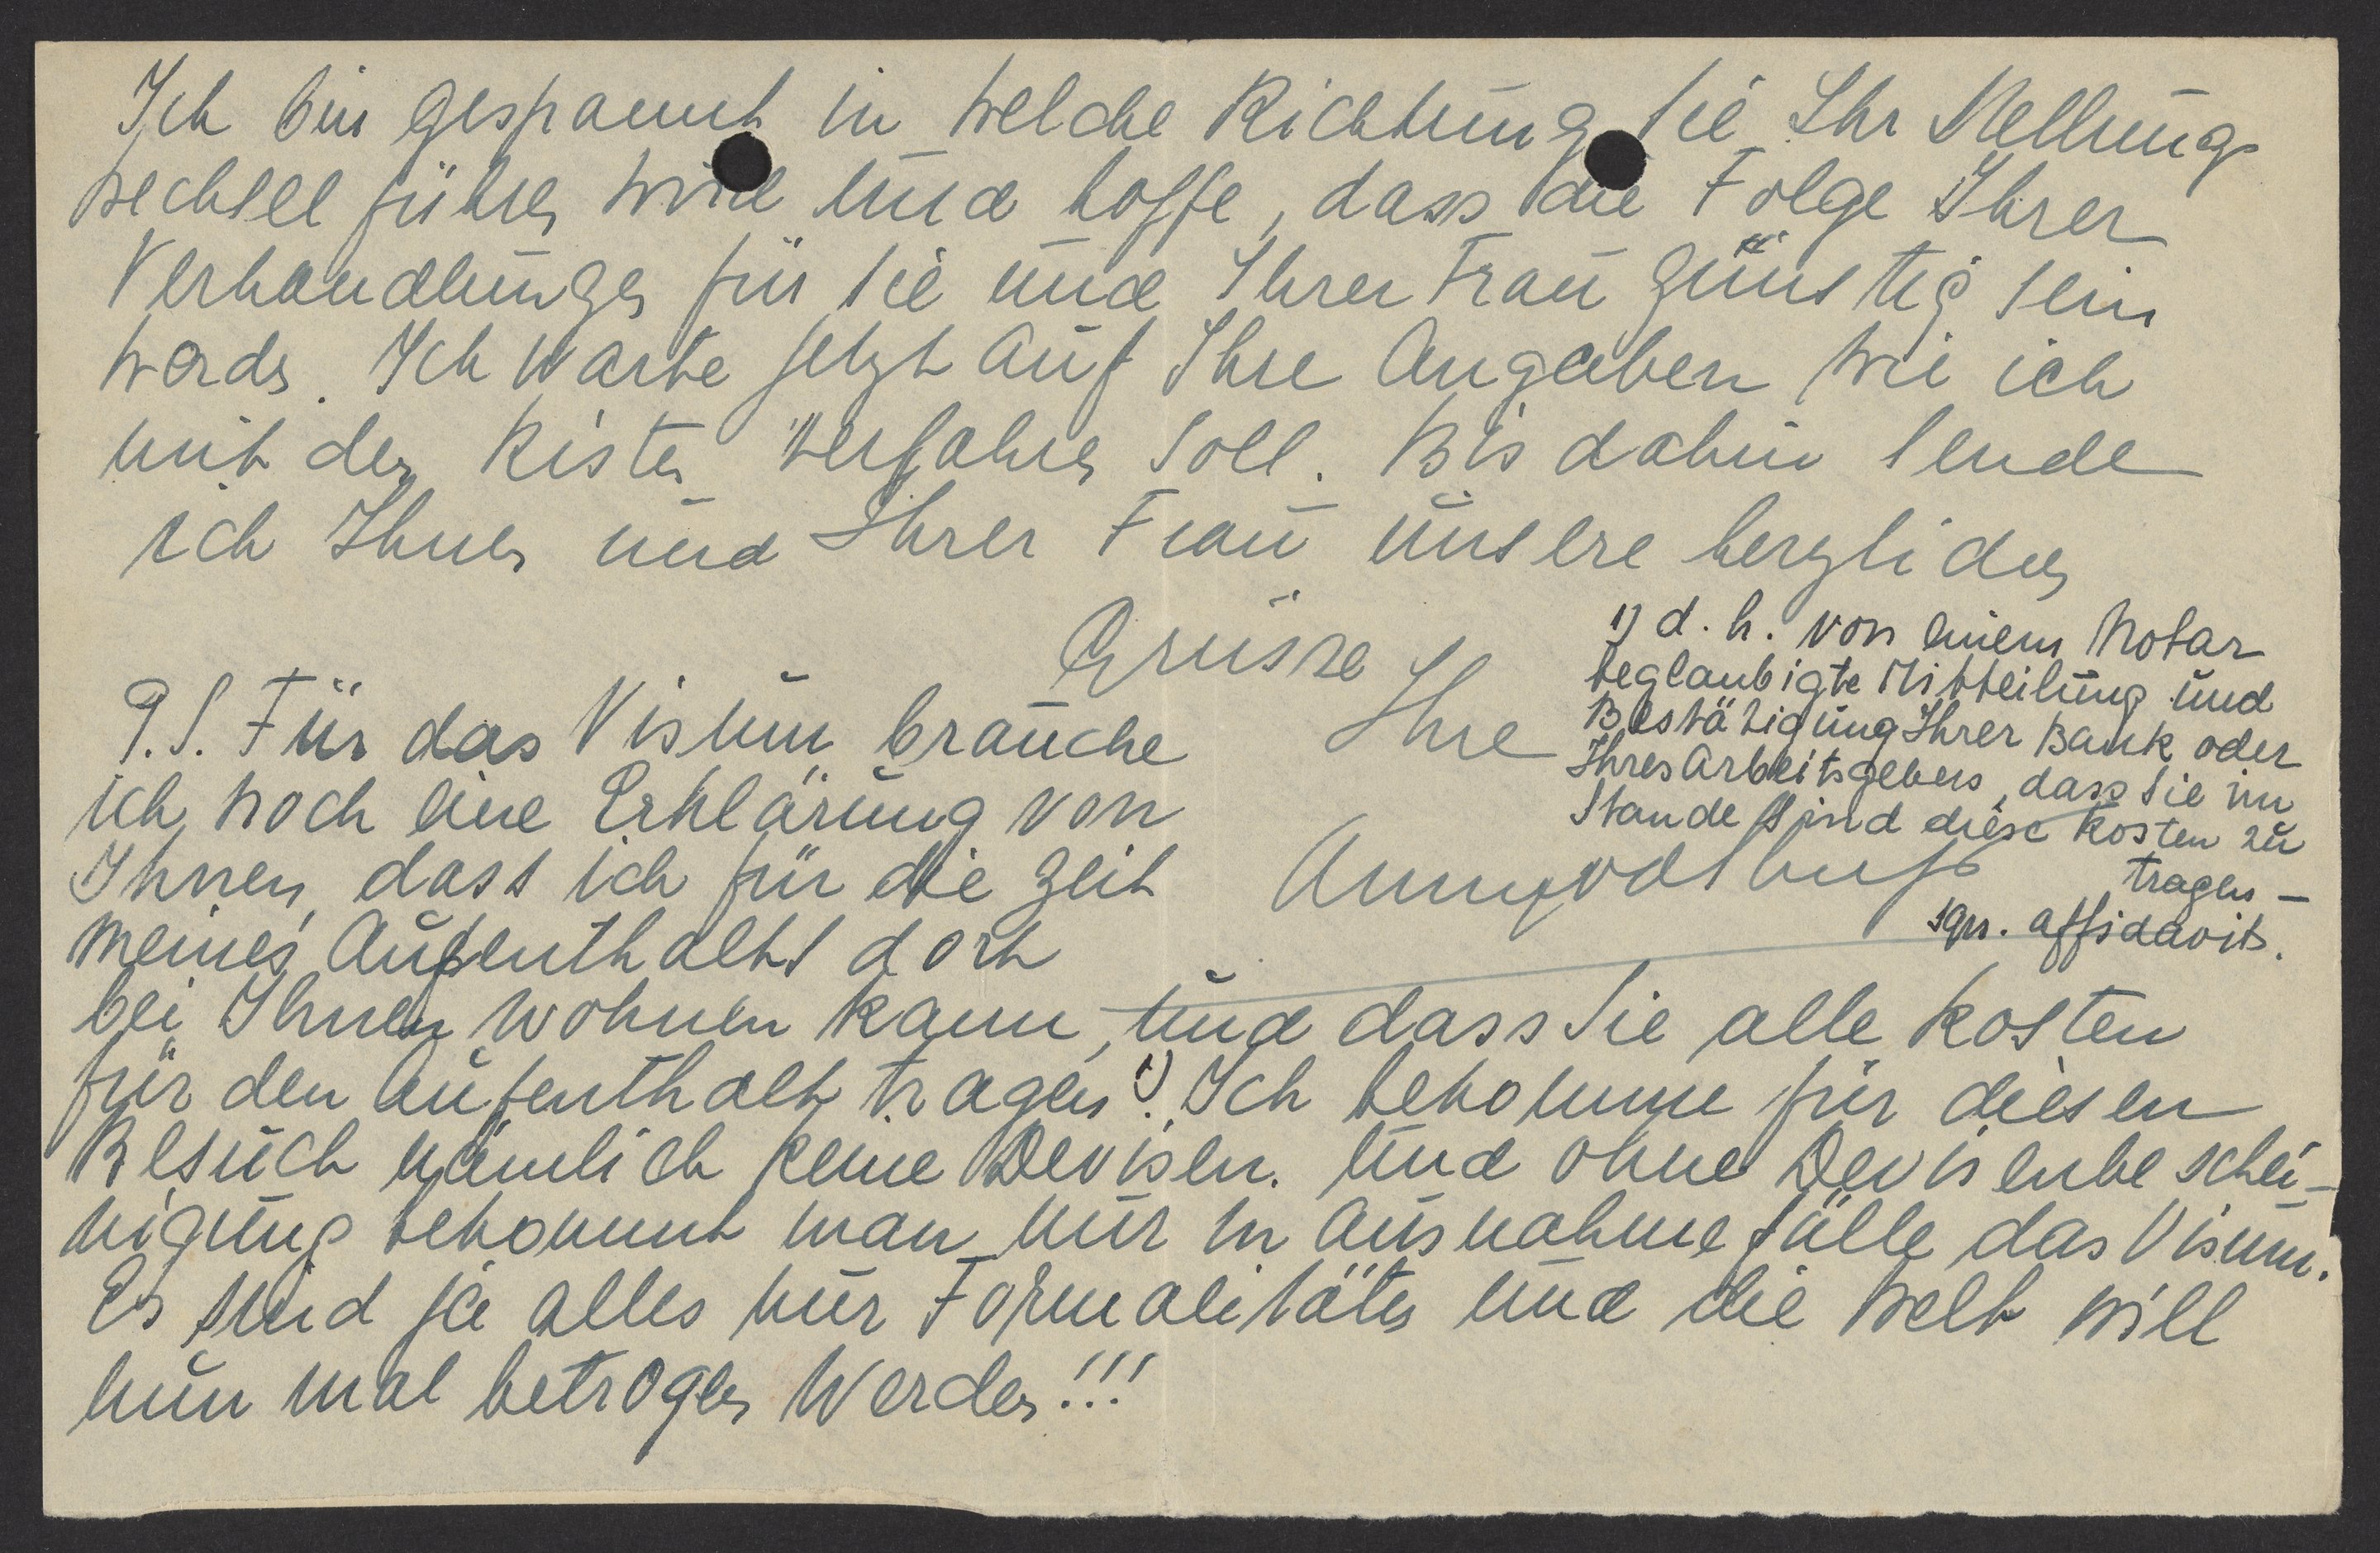 Ich bin gespannt in welche Richtung Sie Ihr Stellungs
wechsel führen wird und hoffe, dass die Folge Ihrer
Verhandlungen für Sie und Ihrer Frau günstig sein
werden. Ich warte jetzt auf Ihre Angaben wie ich
mit den Kisten verfahren soll. Bis dahin sende
ich Ihnen und Ihrer Frau unsere herzlichen
Grüsse
Ihre
1) d. h. von einem Notar
beglaubigte Mitteilung und
Bestätigung Ihrer Bank oder
Ihres Arbeitsgebers, dass Sie im
Stande sind diese Kosten zu
tragen –
sgn. affidavits.
P.S. Für das Visum brauche
ich noch eine Erklärung von
Ihnen, dass ich für die Zeit
meines Aufenthalts dort
bei Ihnen wohnen kann, und dass Sie alle Kosten
für den Aufenthalt tragen 1). Ich bekomme für diesen
Besuch nämlich keine Devisen. Und ohne Devisenbeschei-
nigung bekommt man nur in Ausnahmefälle das Visum.
Es sind ja alles nur Formalitäten und die Welt will
nun mal betrogen werden!!!